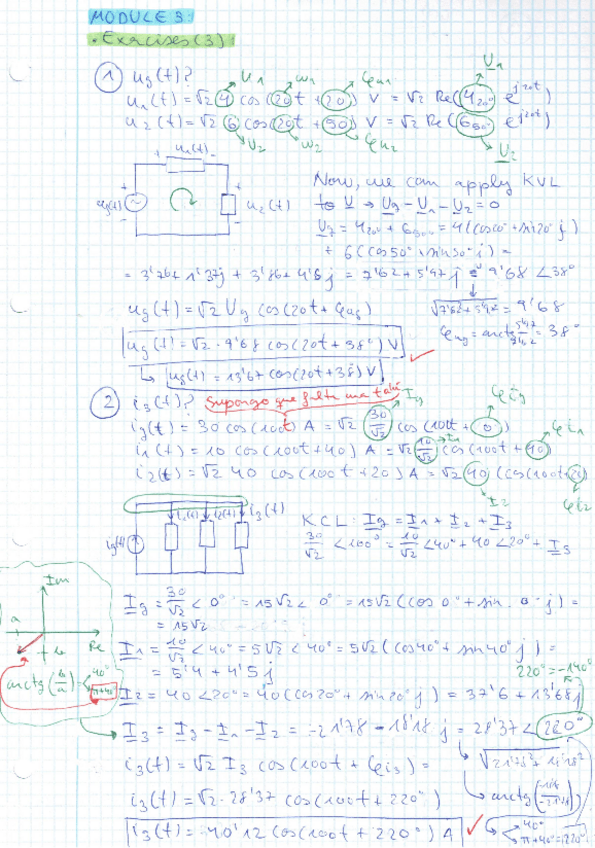 MODULE 3:
• Exercises (3)
1 ug(t)?
U1 ω1 φu1 U1
u1(t) = √2 4 cos(20t + 20) V = √2 Re(4 20° e^j20t)
u2(t) = √2 6 cos(20t + 50) V = √2 Re(6 50° e^j20t)
U2 ω2 φu2 U2
u1(t)
ug(t) u2(t)
Now, we can apply KVL
to U → Ug - U1 - U2 = 0
Ug = 4 20° + 6 50° = 4(cos20° + sin20° j)
+ 6(cos50° + sin50° j) =
= 3'76 + 1'37j + 3'86 + 4'6j = 7'62 + 5'97j = 9'68 ∠38°
√7'62² + 5'97² = 9'68
φug = arctg 5'97/7'62 = 38°
ug(t) = √2 Ug cos(20t + φug)
ug(t) = √2 · 9'68 cos(20t + 38°) V
↳ ug(t) = 13'67 cos(20t + 38) V
2 i3(t)? Supongo que falta una Ig φig
ig(t) = 30 cos(100t) A = √2 30/√2 cos(100t + 0) φi1
i1(t) = 10 cos(100t + 40) A = √2 10/√2 cos(100t + 40)
i2(t) = √2 40 cos(100t + 20) A = √2 40 (cos(100t + 20)
I2 φi2
ig(t) i1(t) i2(t) i3(t)
KCL: Ig = I1 + I2 + I3
30/√2 <100° = 10/√2 <40° + 40 <20° + I3
Im
a
b Re
arctg(b/a) < 40°
π+40°
Ig = 30/√2 < 0° = 15√2 < 0° = 15√2 (cos 0° + sin 0 · j) =
= 15√2
I1 = 10/√2 < 40° = 5√2 < 40° = 5√2 (cos40° + sin40° j) =
= 5'4 + 4'5j
220° = -140°
I2 = 40 <20° = 40(cos20° + sin20° j) = 37'6 + 13'68j
I3 = Ig - I1 - I2 = -21'78 - 18'18 j = 28'37 < 220°
√21'78² + 18'18²
i3(t) = √2 I3 cos(100t + φi3) =
i3(t) = √2 · 28'37 cos(100t + 220°)
i3(t) = 40'12 cos(100t + 220°) A
< 40°
π+40° = 220°